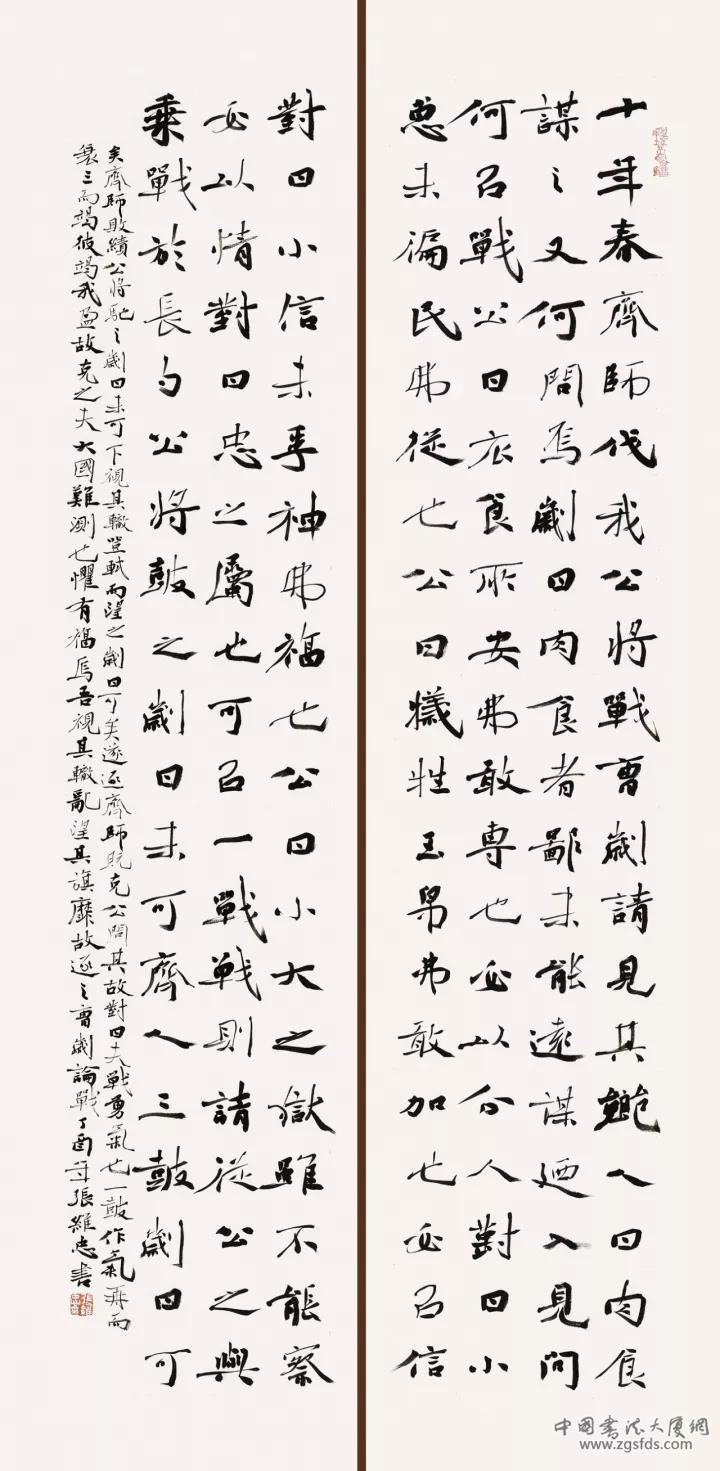 十年春齊師伐我公將戰曹劌請見其鄉人曰肉食
謀之又何間焉劌曰肉食者鄙未能遠謀迺入見問
何以戰公曰衣食所安弗敢専也必以分人對曰小
惠未徧民弗從也公曰犧牲玉帛弗敢加也必以信
對曰小信未孚神弗福也公曰小大之獄雖不能察
必以情對曰忠之屬也可以一戰戰則請從公之與
乘戰於長勺公將鼓之劌曰未可齊人三鼓劌曰可
矣齊師敗績公將馳之劌曰未可下視其轍登軾而望之劌曰可矣遂逐齊師既克公問其故對曰夫戰勇氣也一鼓作氣再而
衰三而竭彼竭我盈故克之夫大國難測也懼有焉吾視其轍亂望其旗靡故逐之曹劌論戰丁酉年張維忠書
中國書法大廈網
www.zgsfds.com